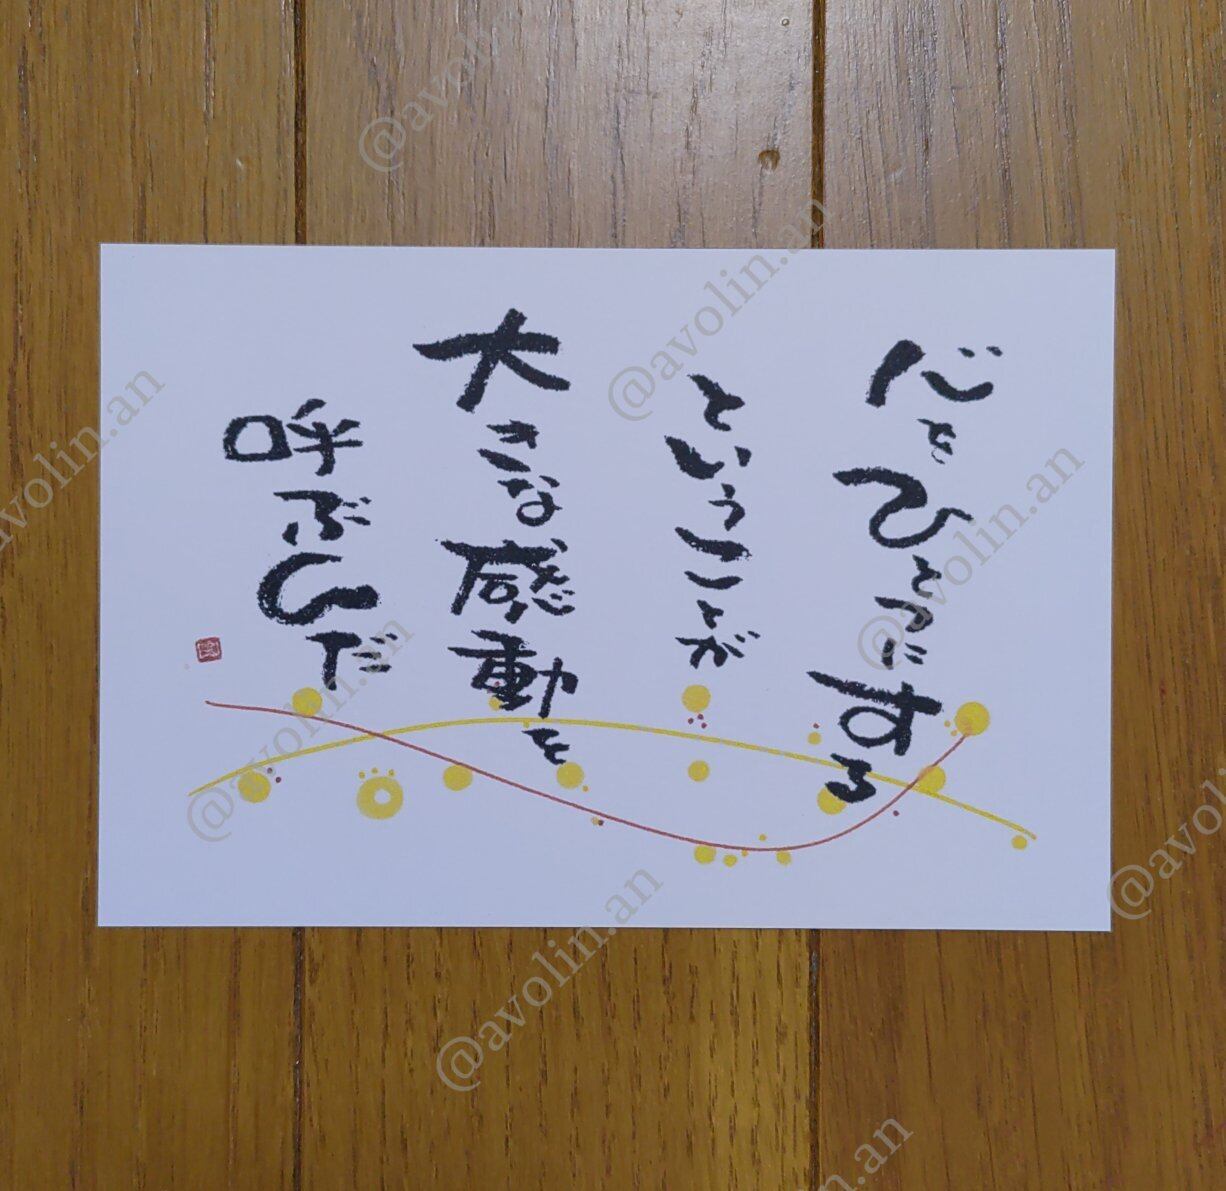 心をひとつにする
ということが
大きな感動を
呼ぶんだ
@avolin.an
@avolin.an
@avolin.an
@avolin.an
@avolin.an
@avolin.an
@avolin.an
@avolin.an